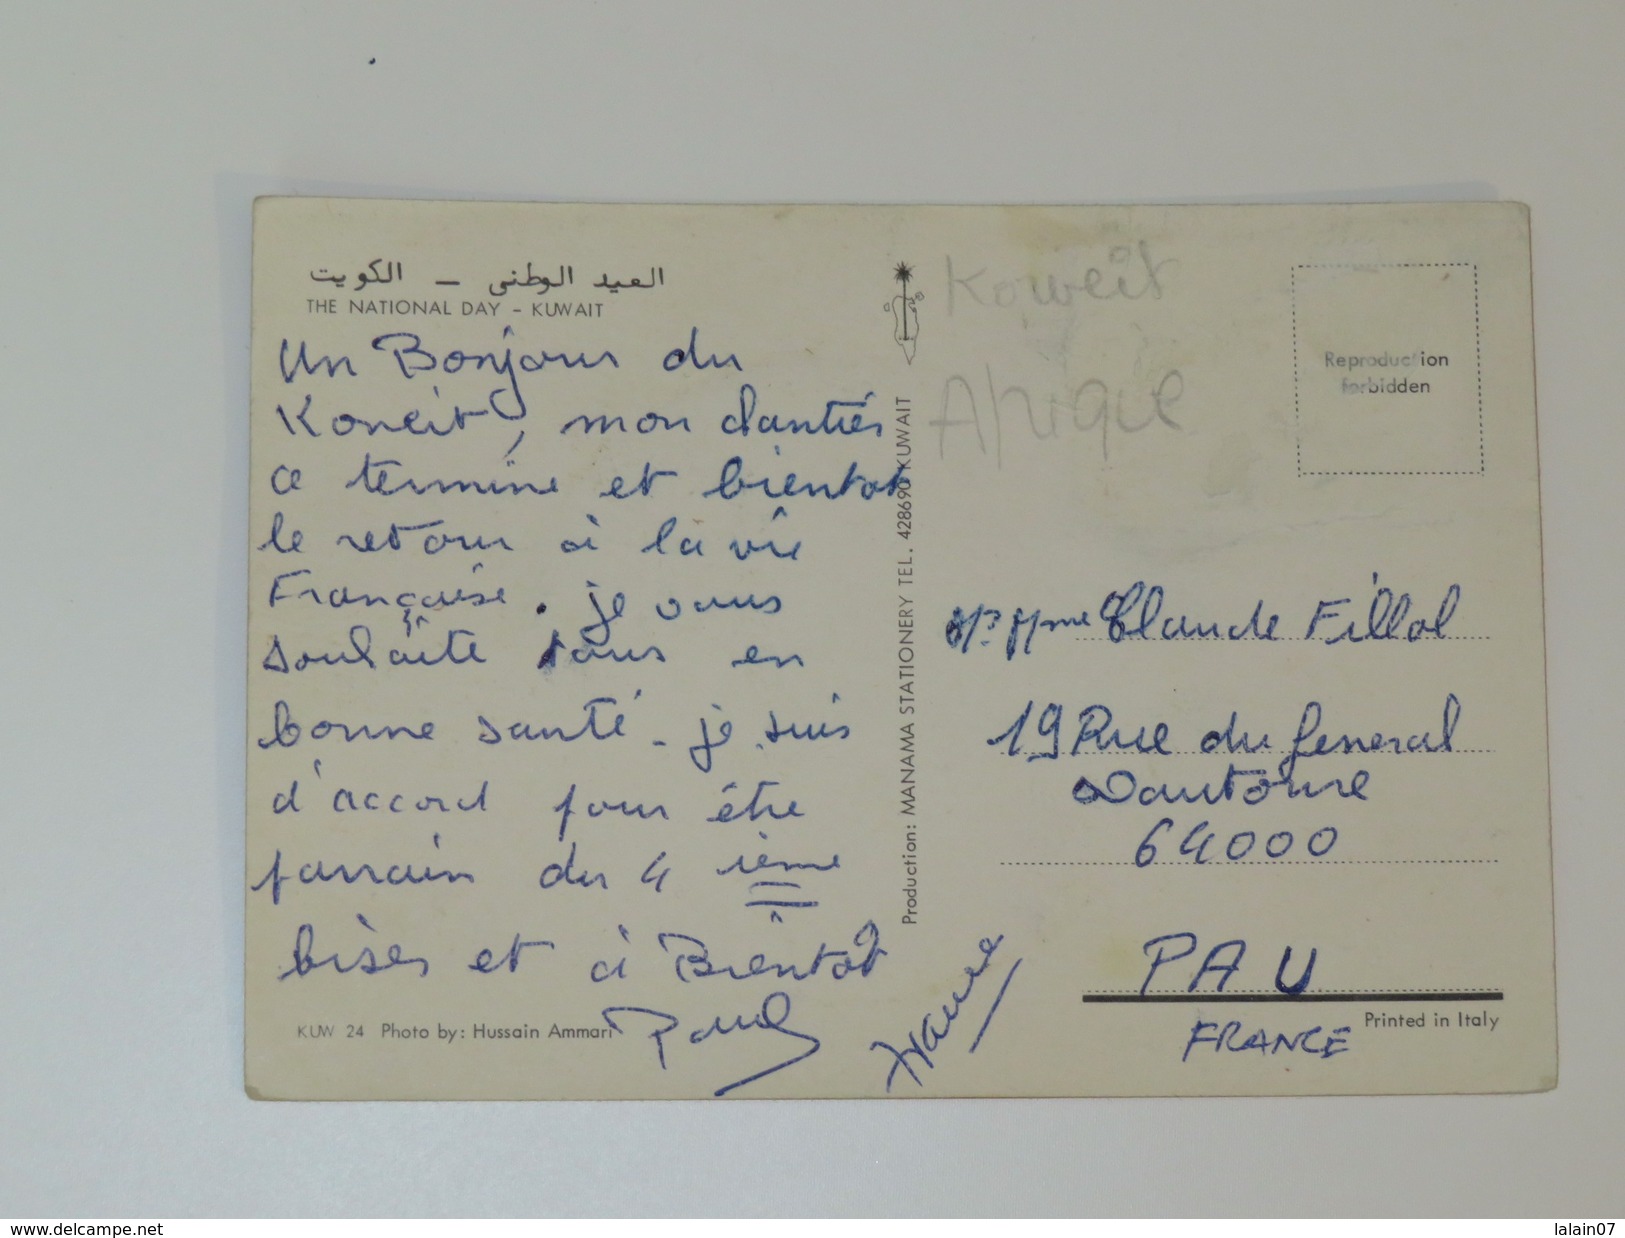 العيد الوطني – الكويت
THE NATIONAL DAY – KUWAIT
Un Bonjour du
Koneit, mon chantiés
ce termine et bientot
le retour à la vie
Française. je vous
souhaite tous en
bonne santé - je suis
d'accord pour être
parrain du 4 ième
bises et à Bientot
Paul
KUW 24 Photo by: Hussain Ammari
Production: MANAMA STATIONERY TEL. 428690 KUWAIT
Koweit
Afrique
Reproduction
forbidden
Mme Claude Fillol
19 Rue du General
64000
PAU
FRANCE
Printed in Italy
www.delcampe.net
lalain07